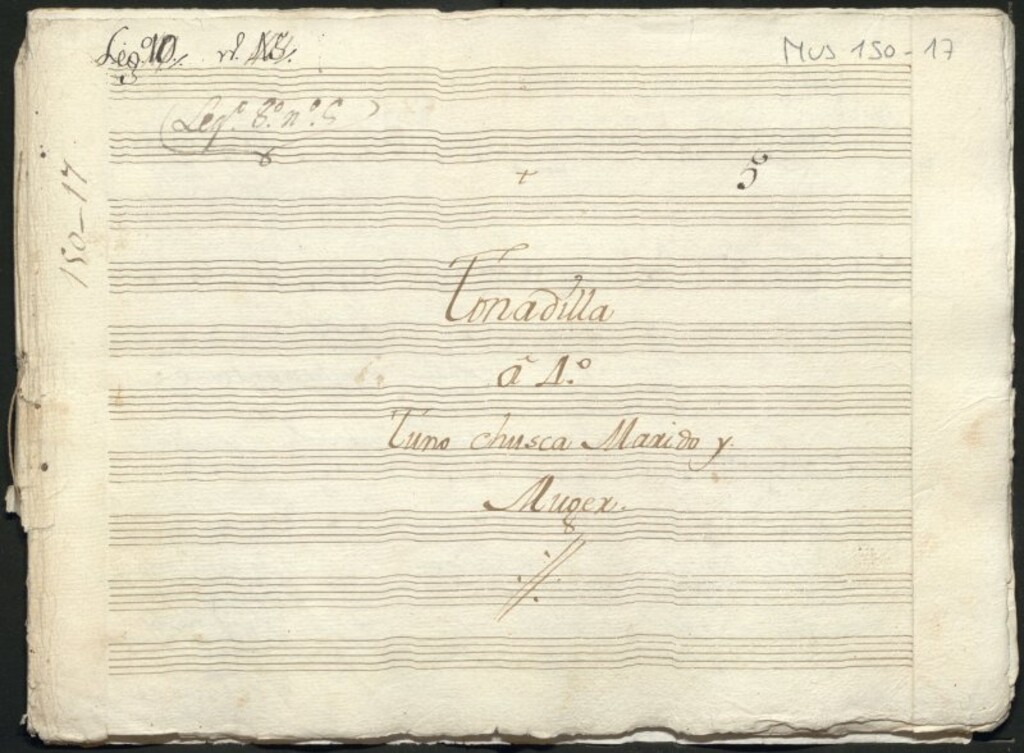 Leg.º 10.
MUS 150-17
(Leg.º 8.º n.º 5)
150-17
Tonadilla
â 4.º
Tuno chusca Marido y
Muger.